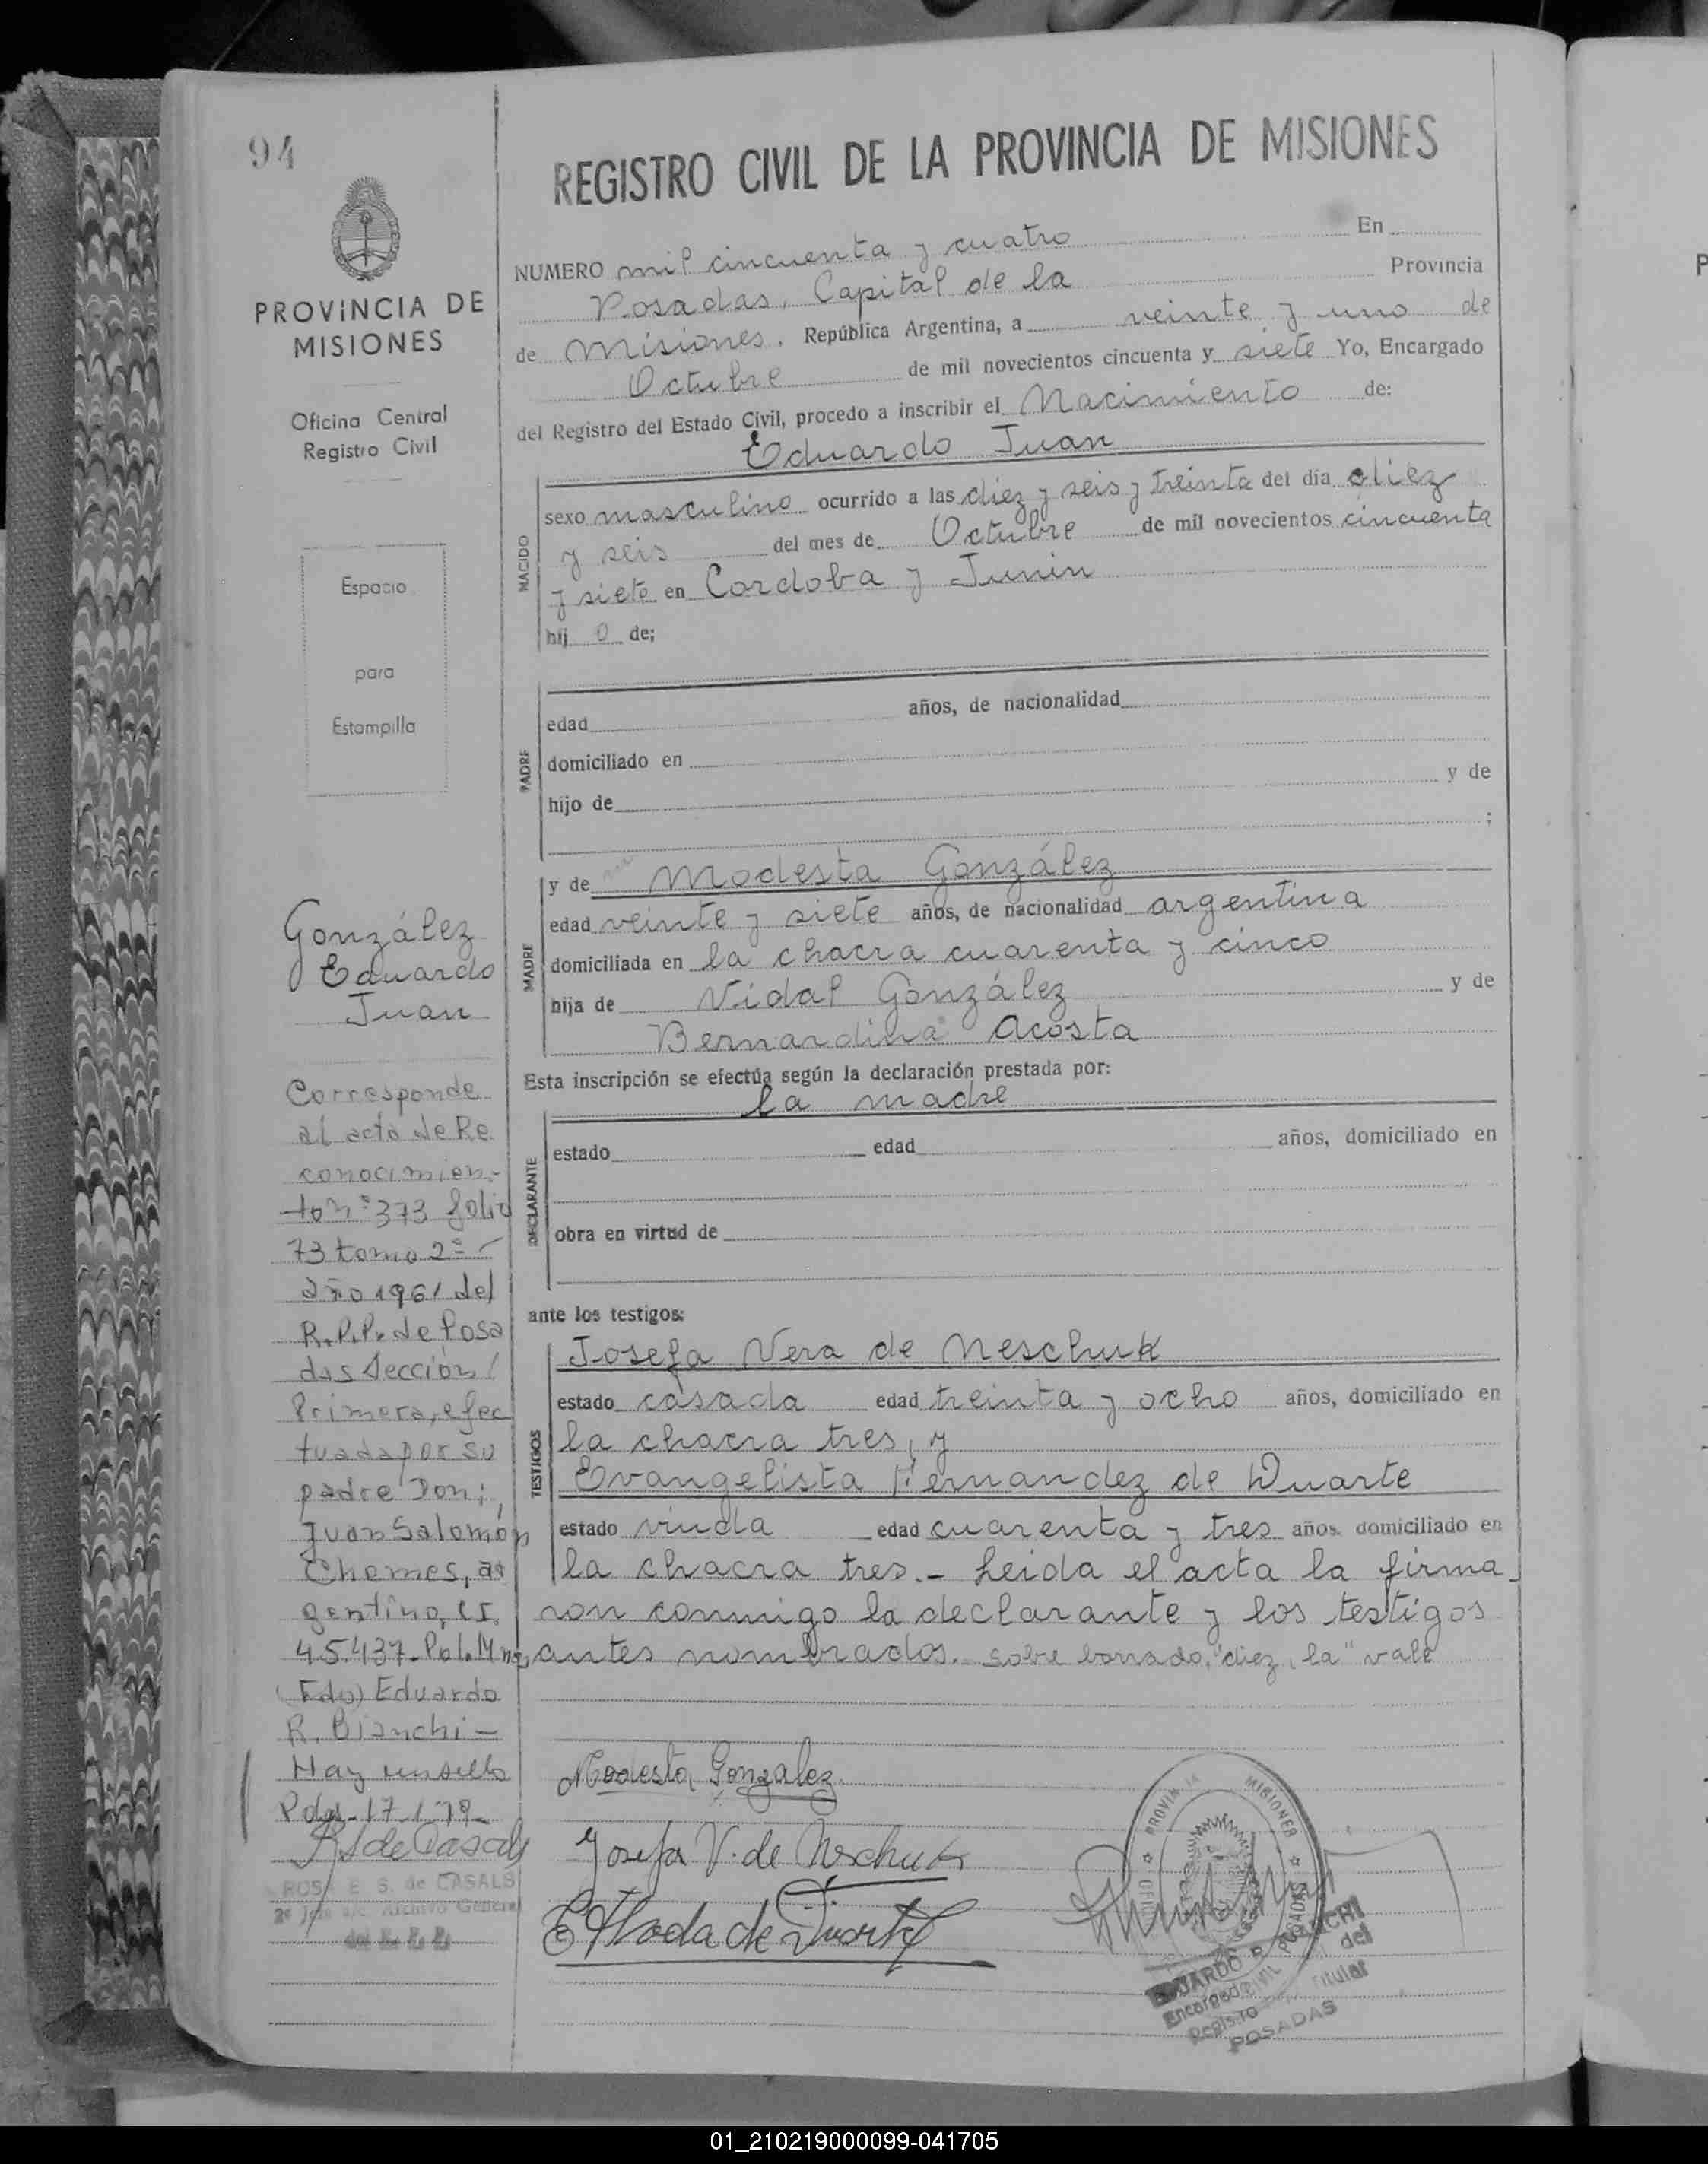 94
PROVINCIA DE
MISIONES
Oficina Central
Registro Civil
Espacio
para
Estampilla
González
Eduardo
Juan
Corresponde
al acta de Re
conocimien-
to nº 373 folio
73 tomo 2º
año 1961 del
R.P.P. de Posa
das Sección
Primera, efec
tuada por su
padre Don;
Juan Salomón
Chemes, ar
gentino, C.I.
45.437- Pol. Mnes
(Fdo) Eduardo
R. Bianchi -
Hay un sello
Pdas. 17-1-79-
R S de Casals
ROSA E. S. de CASALS
2º Jefe a/c. Archivo General
del R. P. P.
REGISTRO CIVIL DE LA PROVINCIA DE MISIONES
NUMERO mil cincuenta y cuatro En
Posadas, Capital de la Provincia
de Misiones, República Argentina, a veinte y uno de
Octubre de mil novecientos cincuenta y siete Yo, Encargado
del Registro del Estado Civil, procedo a inscribir el Nacimiento de:
Eduardo Juan
NACIDO
sexo masculino ocurrido a las diez y seis y treinta del día diez
y seis del mes de Octubre de mil novecientos cincuenta
y siete en Cordoba y Junin
hij o de;
PADRE
edad años, de nacionalidad
domiciliado en
hijo de y de
;
MADRE
y de Modesta González
edad veinte y siete años, de nacionalidad argentina
domiciliada en la chacra cuarenta y cinco
hija de Vidal González y de
Bernardina Acosta
Esta inscripción se efectúa según la declaración prestada por:
la madre
DECLARANTE
estado edad años, domiciliado en
obra en virtud de
ante los testigos:
TESTIGOS
Josefa Vera de Neschuk
estado casada edad treinta y ocho años, domiciliado en
la chacra tres, y
Evangelista Hernandez de Duarte
estado viuda edad cuarenta y tres años, domiciliado en
la chacra tres.- Leida el acta la firma
ron conmigo la declarante y los testigos
antes nombrados. sobre borrado, "diez, la" vale
Modesta Gonzalez
Josefa V. de Neschuk
de Duarte
PROVINCIA MISIONES
POSADAS
EDUARDO R. BIANCHI
Encargado Titular del
Registro CIVIL
POSADAS
01_210219000099-041705